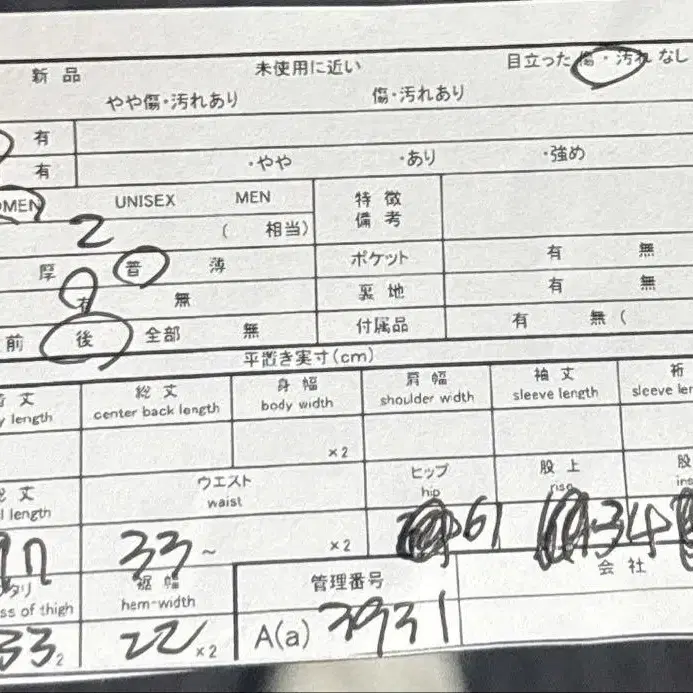 新品 未使用に近い 目立った傷・汚れなし
やや傷・汚れあり 傷・汚れあり
有
有 ・やや ・あり ・強め
OMEN UNISEX MEN 特徴
2 ( 相当) 備考
厚 普 薄 ポケット 有 無
有 無 裏地 有 無
前 後 全部 無 付属品 有 無 (
平置き実寸(cm)
丈 総丈 身幅 肩幅 袖丈 裄
y length center back length body width shoulder width sleeve length sleeve ler
×2
丈 ウエスト ヒップ 股上 股
l length waist hip rise ins
33 ~ ×2 61 34
タリ 裾幅 管理番号 会社
ss of thigh hem-width
33 2 22 ×2 A(a) 3931